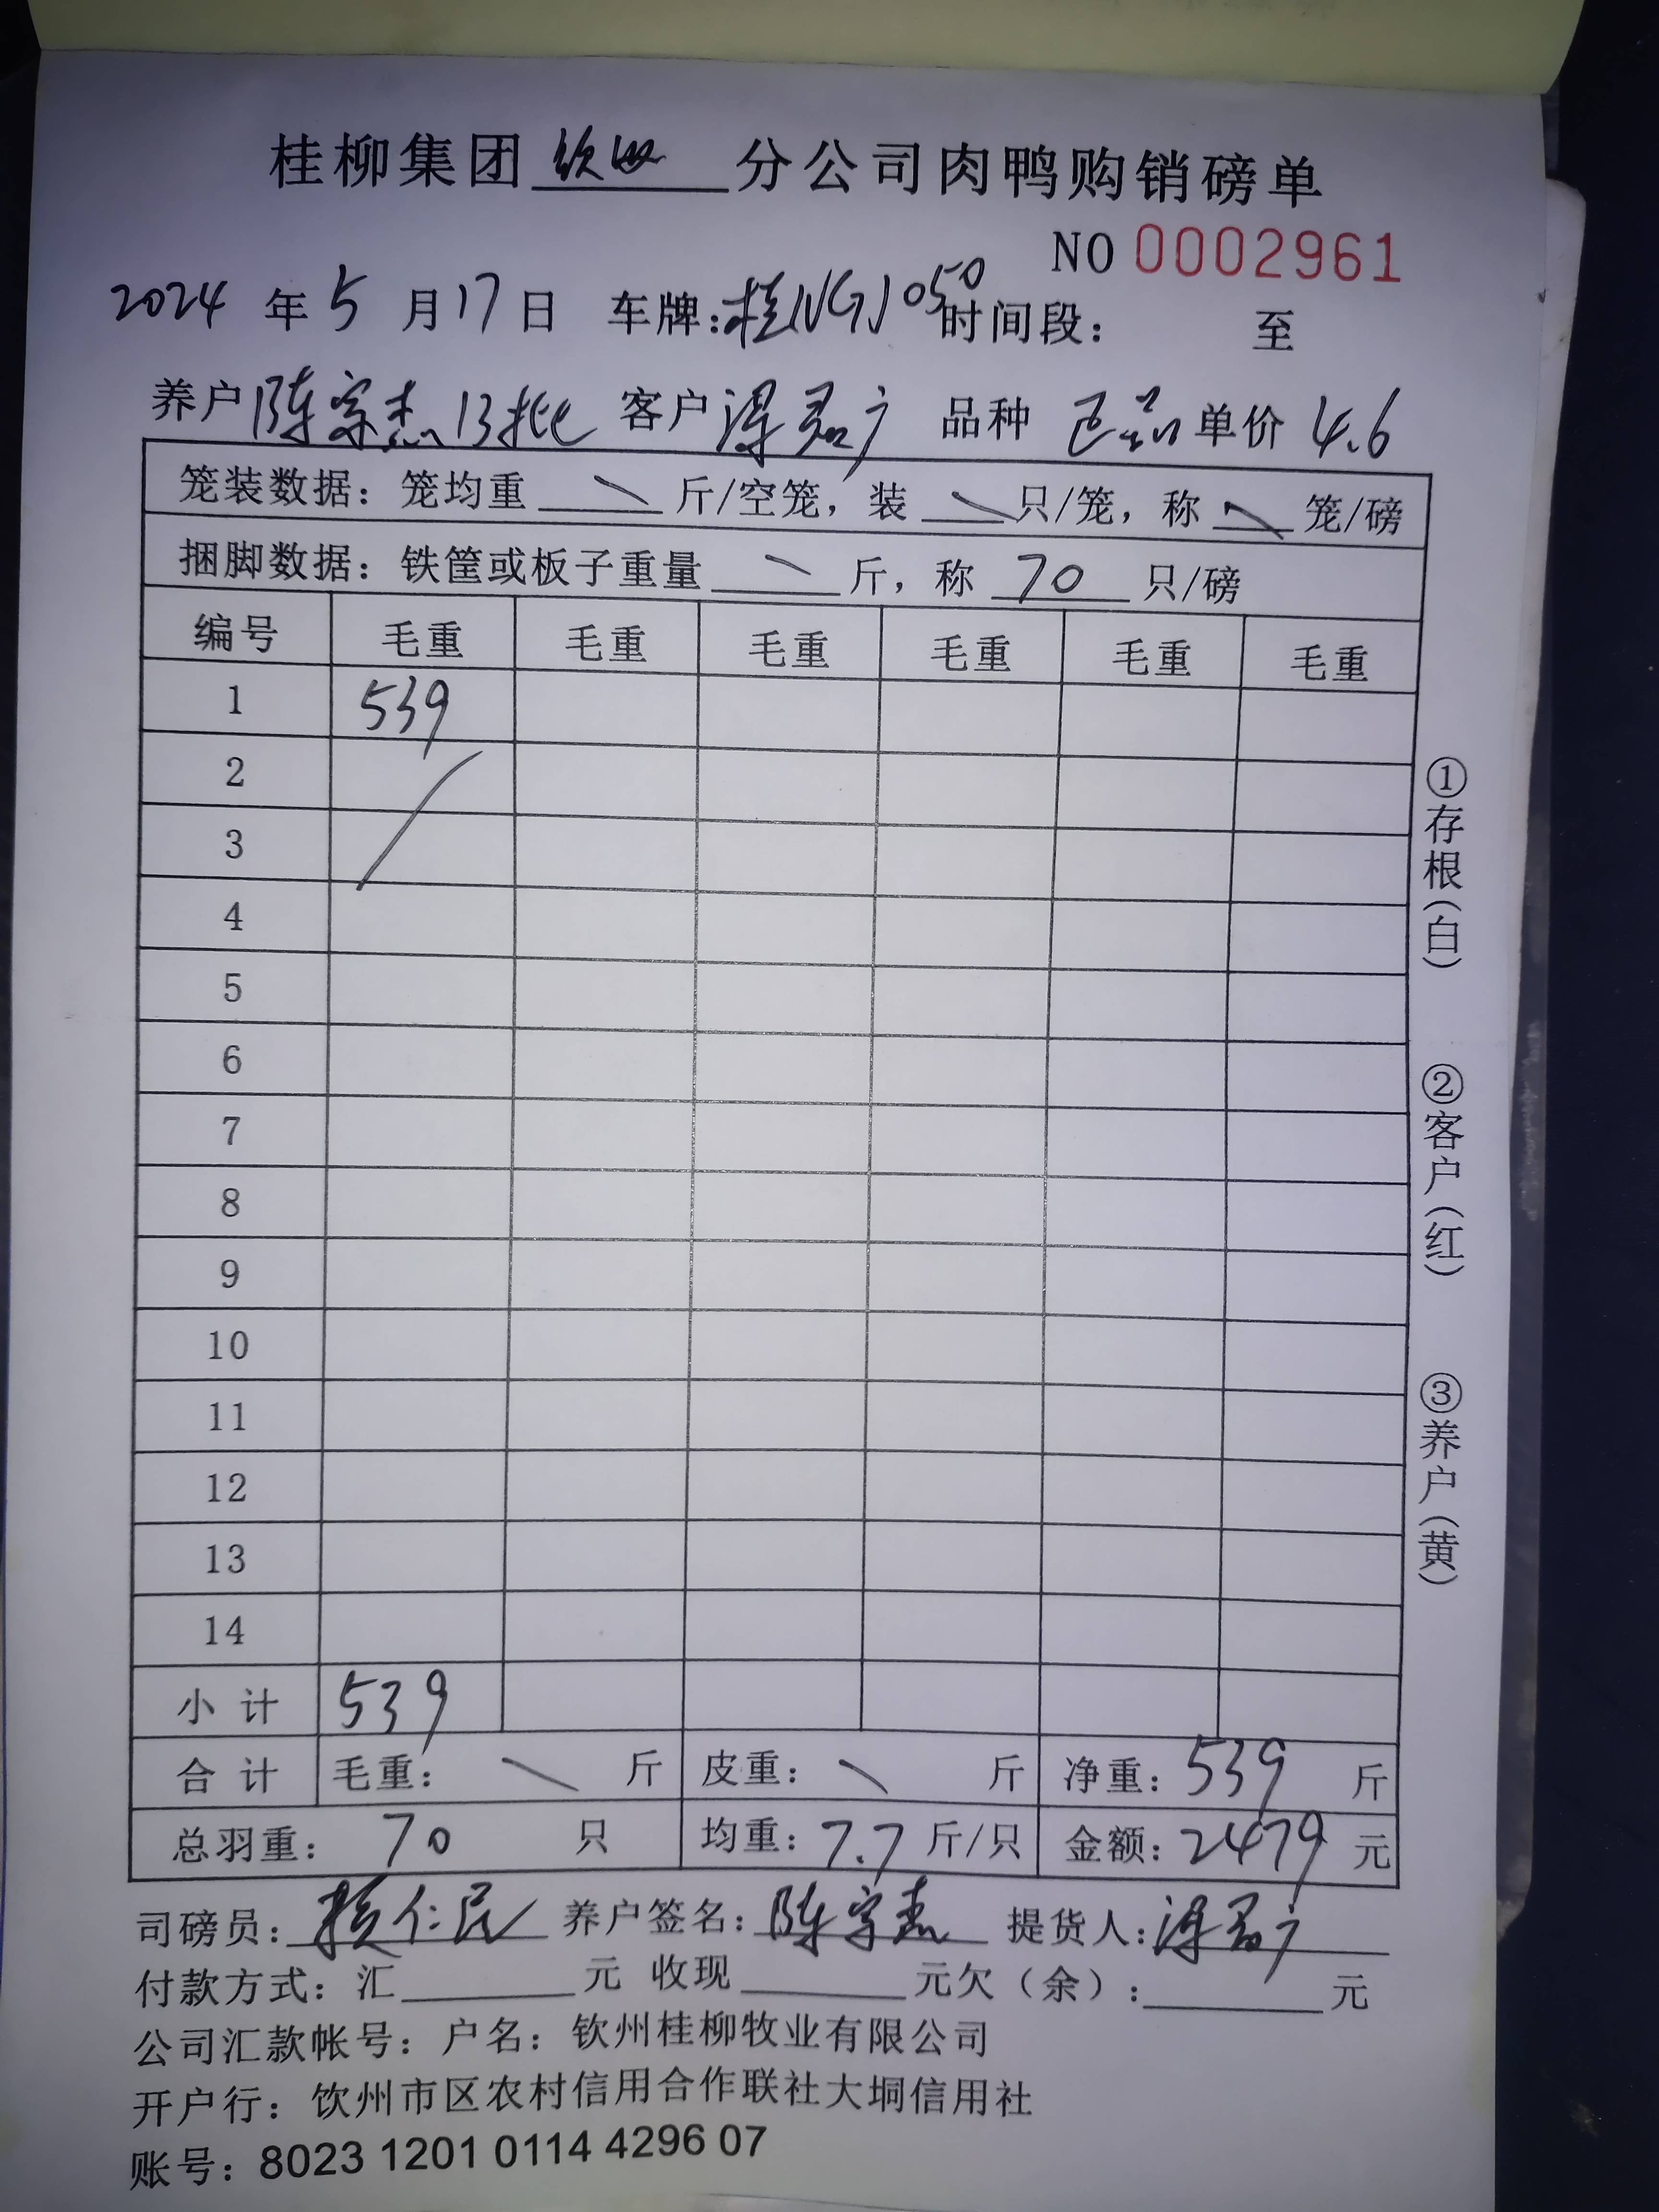 桂柳集团 钦州 分公司肉鸭购销磅单
NO 0002961
2024 年 5 月 17 日 车牌:桂NGJ050 时间段: 至
养户 陈宗杰 13批 客户 君广 品种 单价 4.6
笼装数据:笼均重 \ 斤/空笼,装 \ 只/笼,称 \ 笼/磅
捆脚数据:铁筐或板子重量 \ 斤,称 70 只/磅
编号 毛重 毛重 毛重 毛重 毛重 毛重
1 539
2
3
4
5
6
7
8
9
10
11
12
13
14
小 计 539
合 计 毛重: \ 斤 皮重: \ 斤 净重: 539 斤
总羽重: 70 只 均重: 7.7 斤/只 金额: 2479 元
司磅员: 仁民 养户签名: 陈宗杰 提货人: 君广
付款方式:汇 元 收现 元欠(余): 元
公司汇款帐号:户名:钦州桂柳牧业有限公司
开户行:钦州市区农村信用合作联社大垌信用社
账号:8023 1201 0114 4296 07
①存根(白)
②客户(红)
③养户(黄)